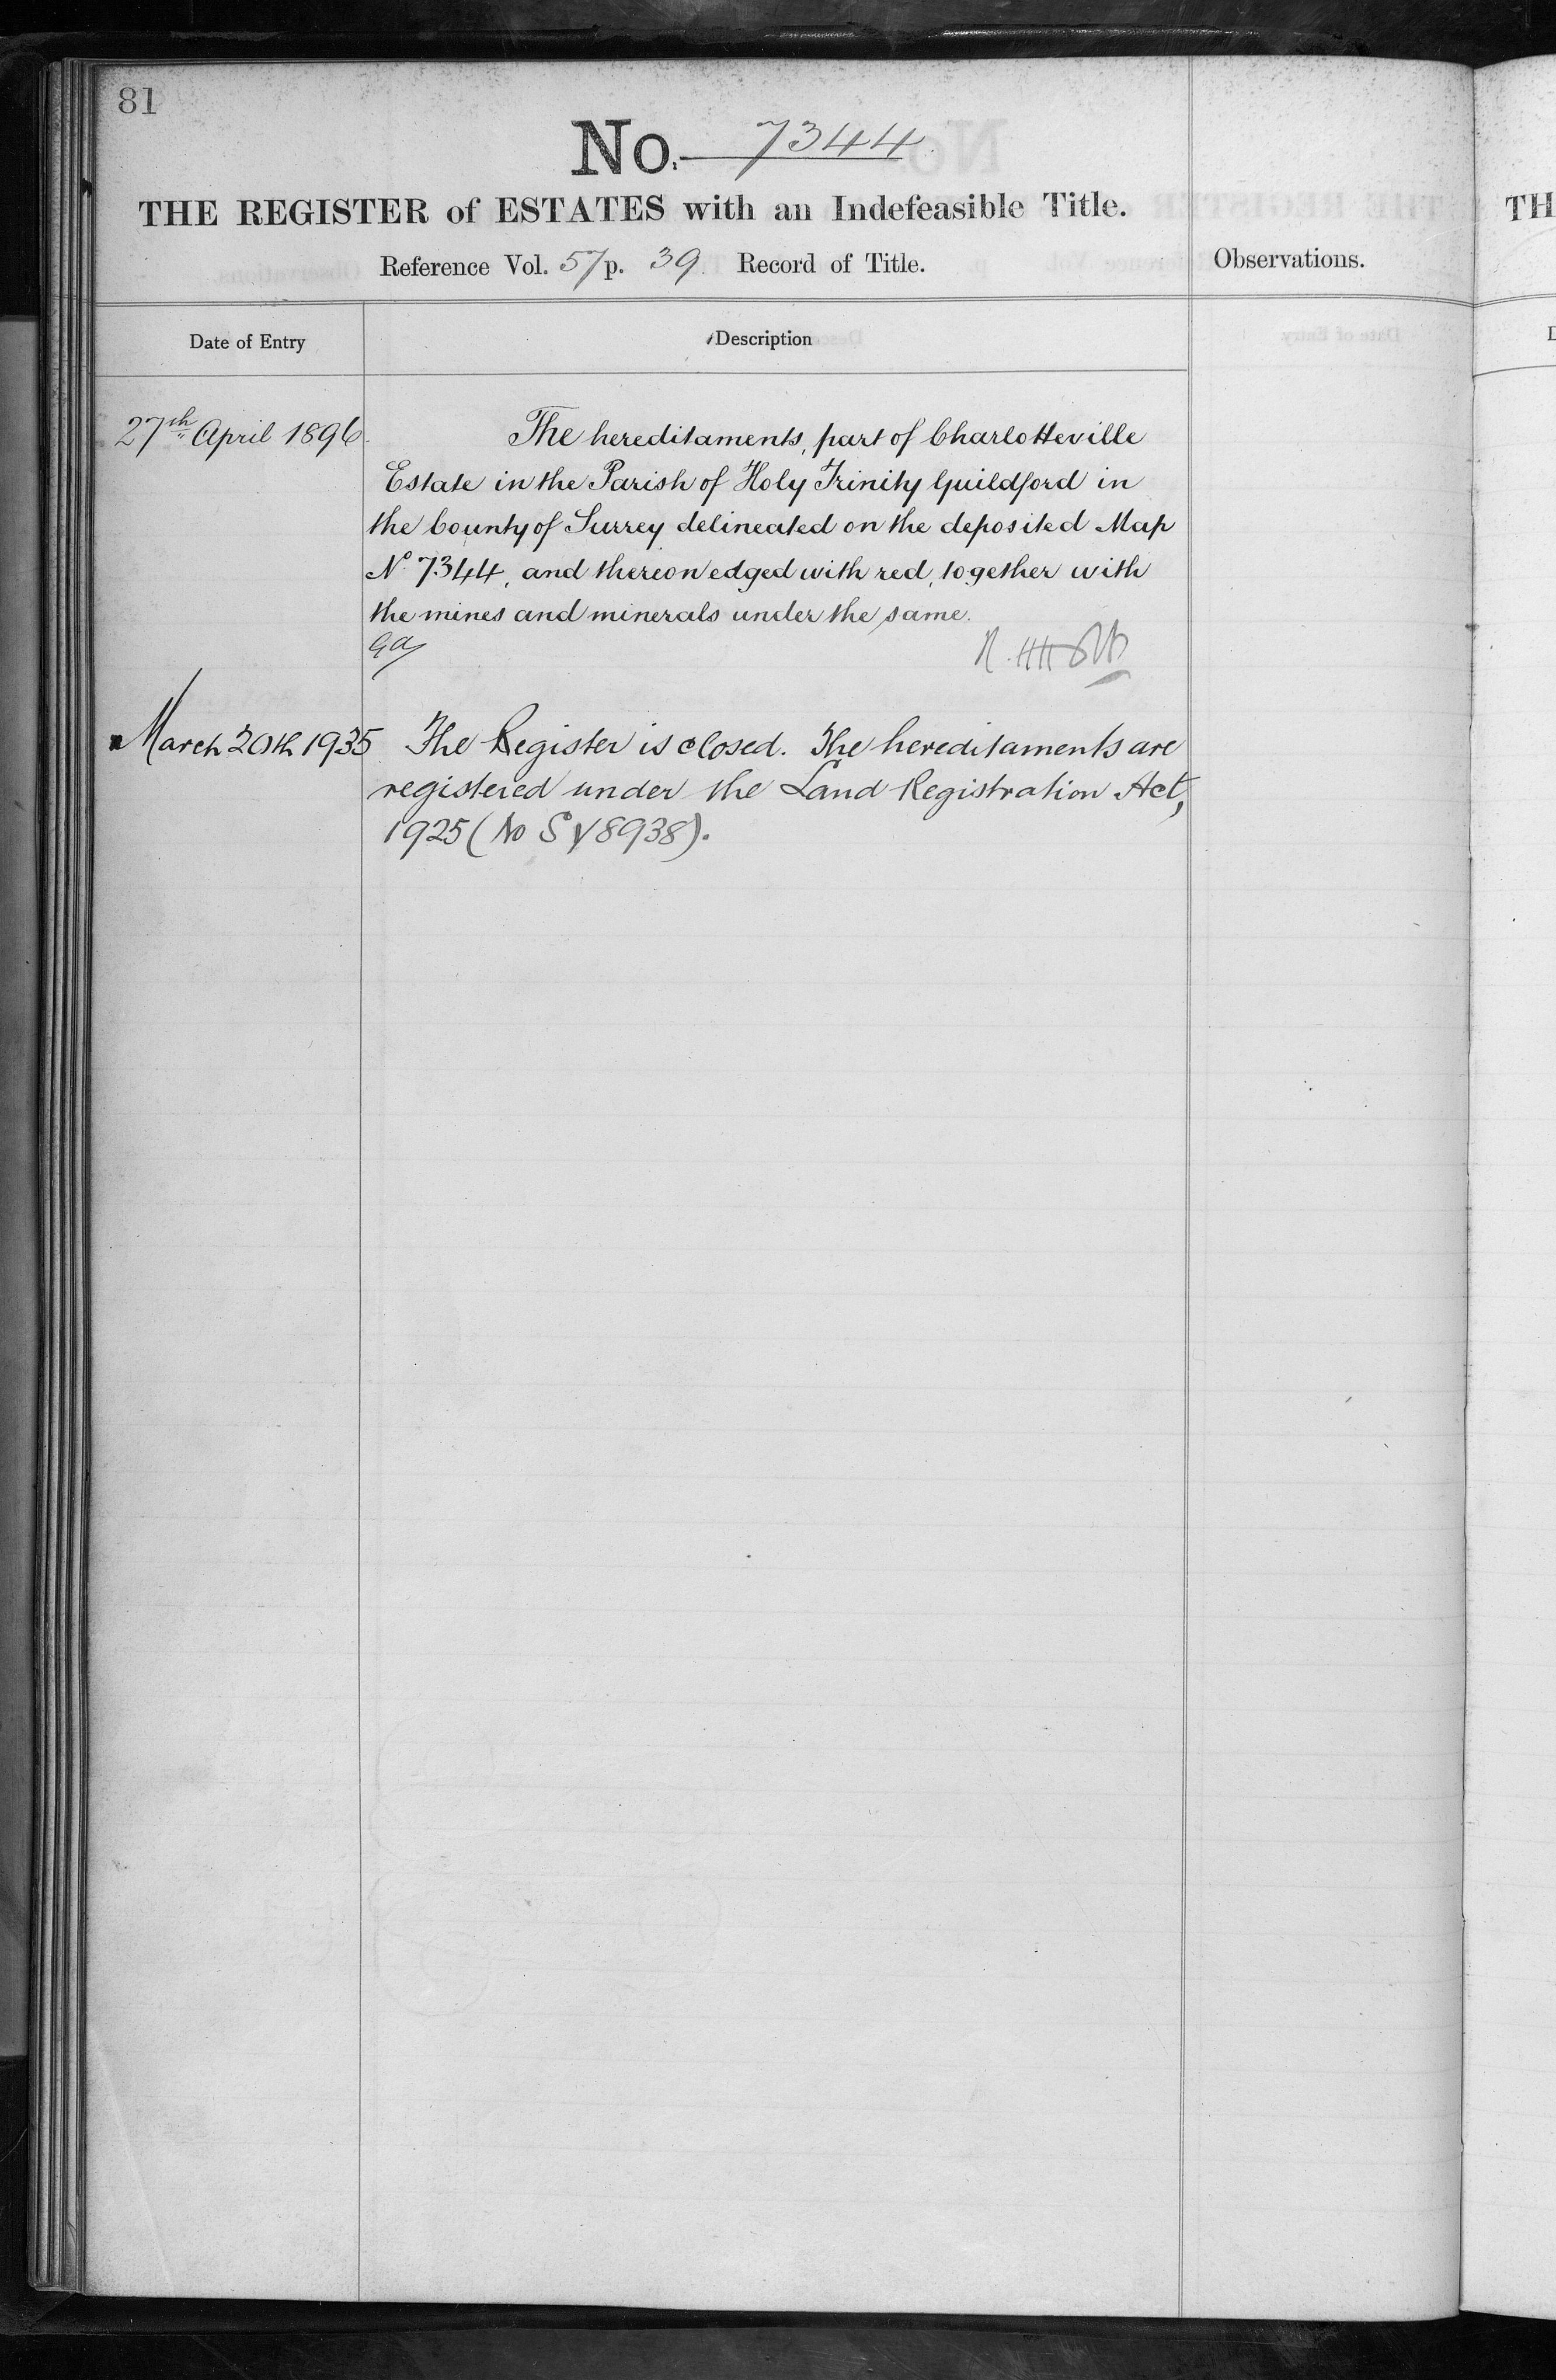 81
No. 7344
THE REGISTER of ESTATES with an Indefeasible Title.
Reference Vol. 57 p. 39 Record of Title.
Observations.
Date of Entry
Description
27th April 1896.
The hereditaments, part of Charlotteville
Estate in the Parish of Holy Trinity Guildford in
the County of Surrey delineated on the deposited Map
No 7344, and thereon edged with red, together with
the mines and minerals under the same.
March 20th 1935
The Register is closed. The hereditaments are
registered under the Land Registration Act,
1925 (No SY8938).
TH